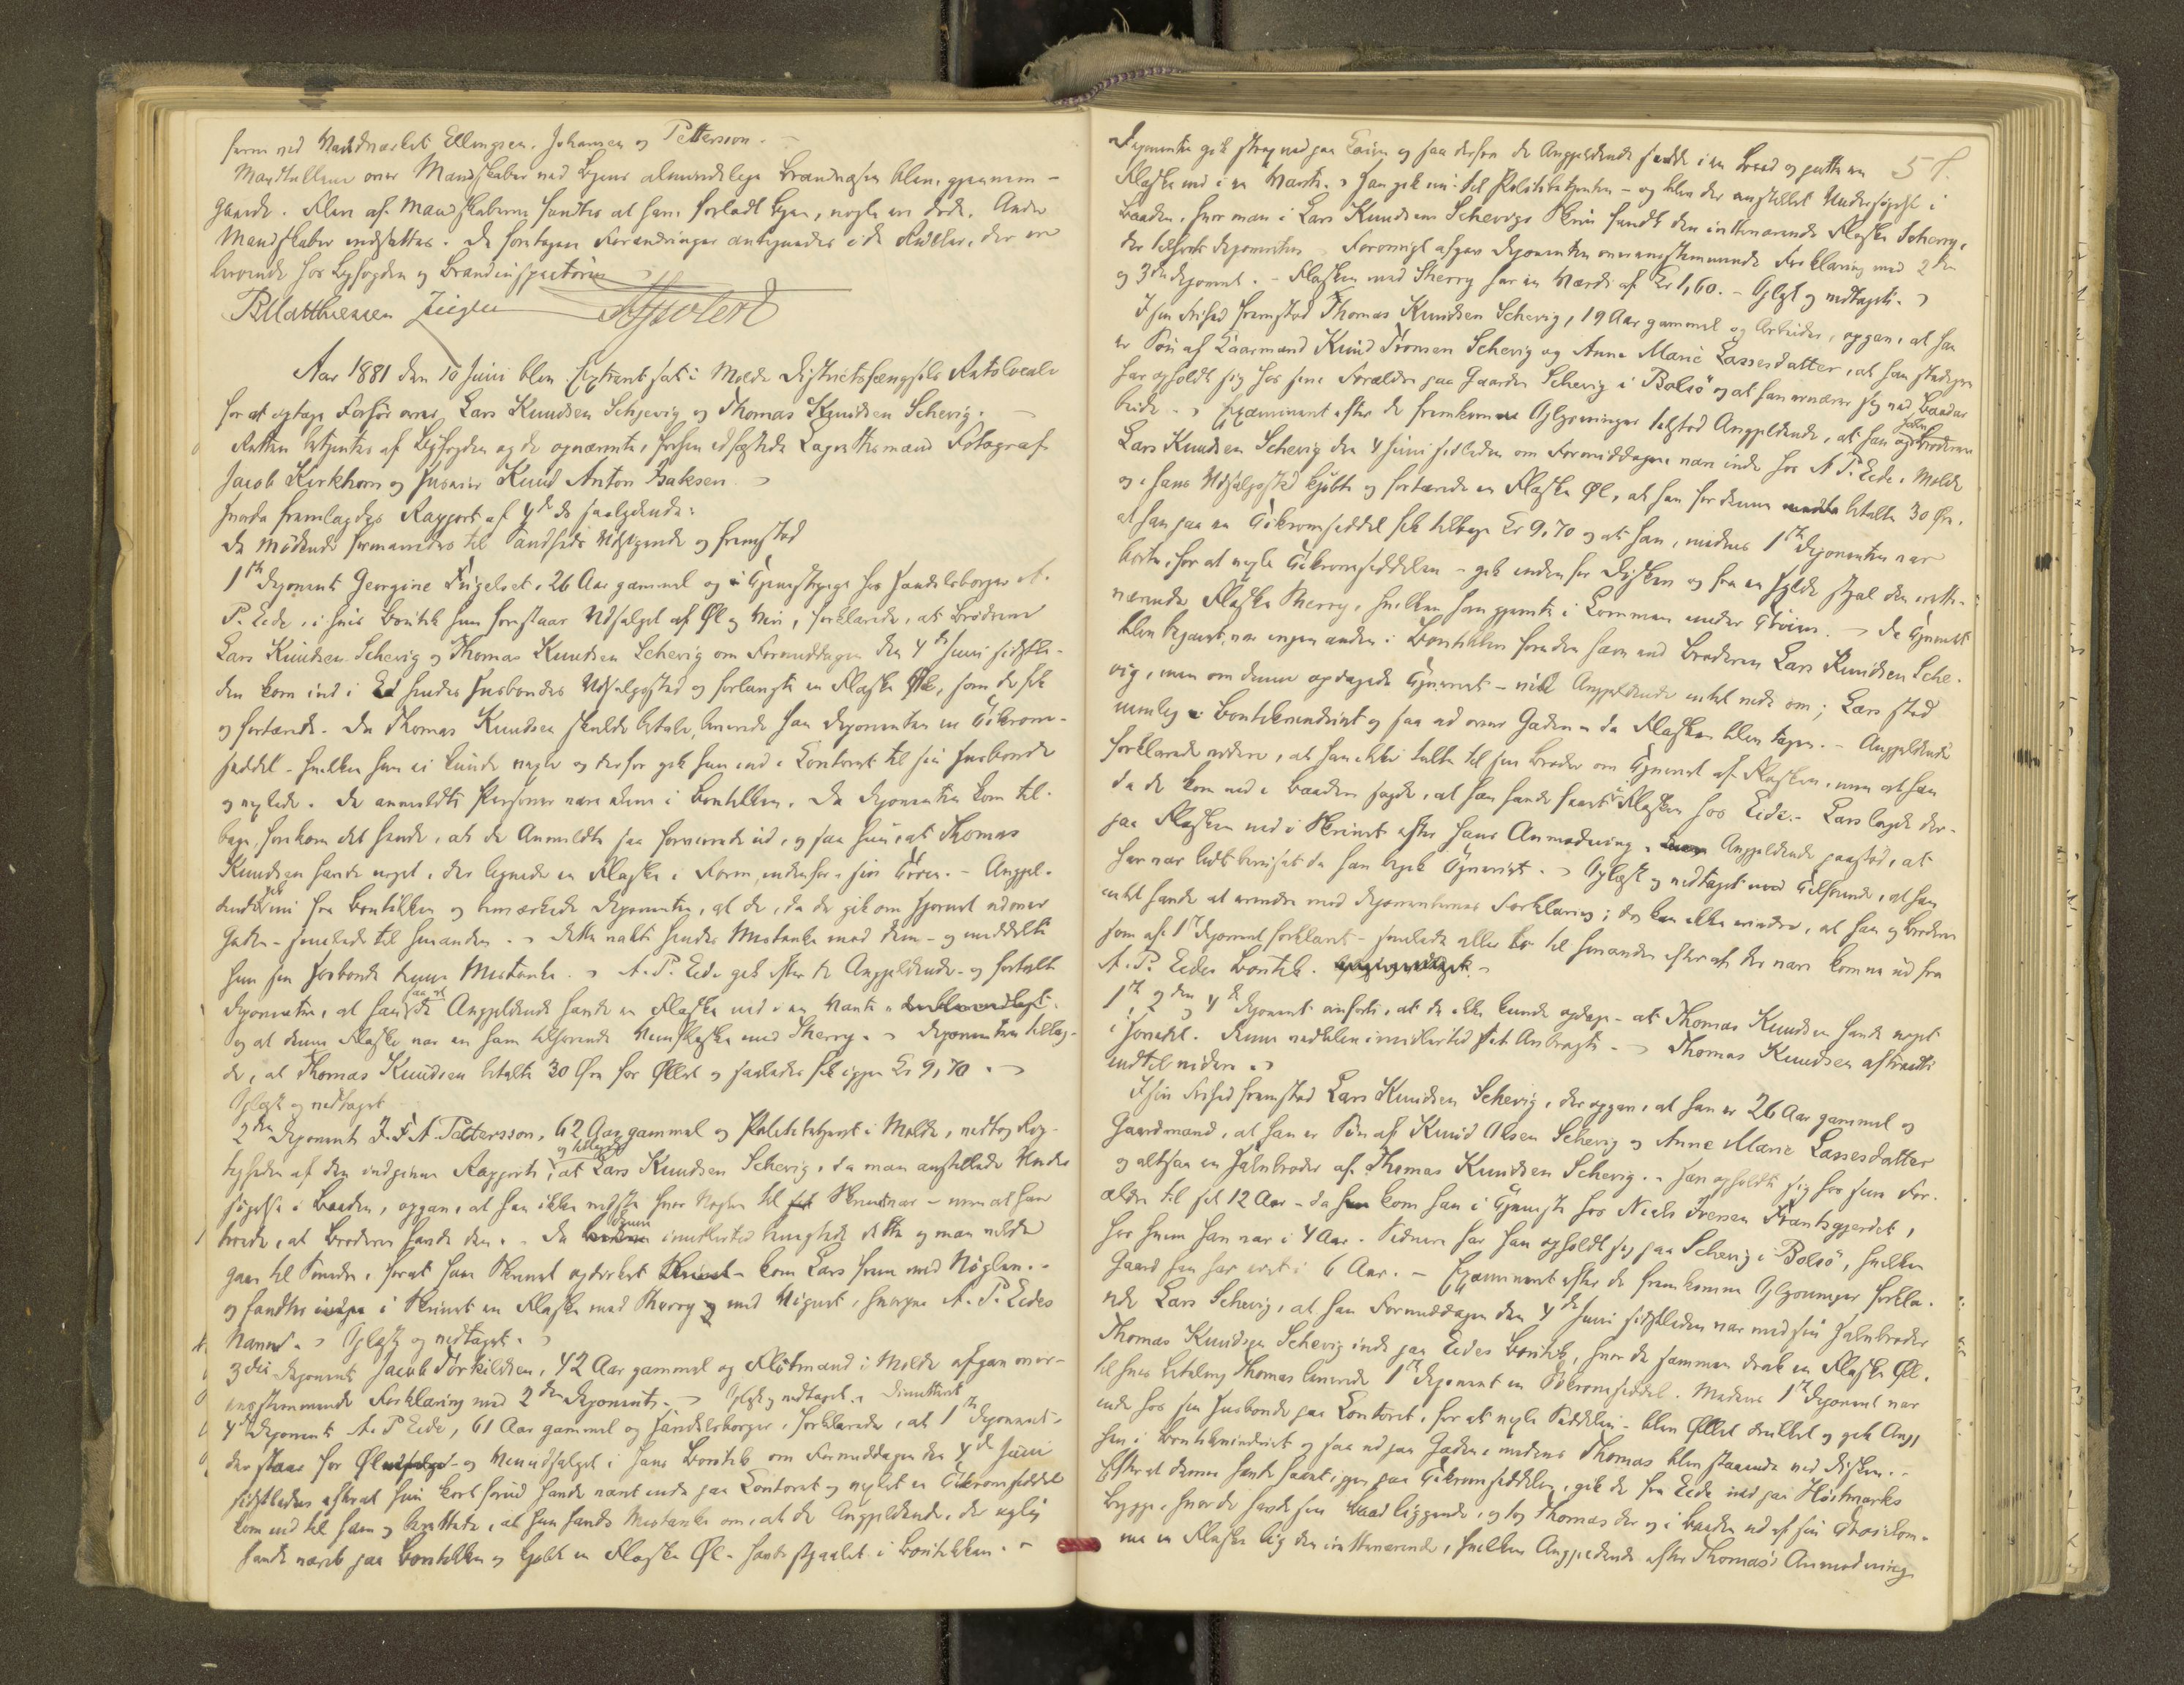 frem ved Haandværket Ellingsen, Johansen og Pettersson. -
Mandtallene over Mandskaber ved Byens almindelige Brandvæsen blev gjennem-
gaaede. Flere af Mandskaberne fandtes at have forladt Byen, nogle ere døde. Andre
Mandskaber indsattes. De foretagne Forandringer antegnedes i de Ruller, der ere
beroende hos Byfogden og Brandinspectøren
BMatthiessen Ziegler
Aar 1881 den 10 Juni blev Extraret sat i Molde Districtsfængsels Retslocale
for at optage Forhør over Lars Knudsen Schjevig og Thomas Knudsen Schevig. -
Retten betjentes af Byfogden og de opnævnte, forhen edfæstede Lagrettesmænd Fotograf
Jacob Kirkhorn og Knud Anton Isaksen.
hvorda fremlagdes Rapport af 4de ds saalydende:
De mødende formanedes til Sandheds Udsigende og fremstod
1ste Deponent Georgine 26 Aar gammel og i Tjeneste hos Handelsborger A.
P. Eide, i hvis Boutik hun forestaar Udsalget af Øl og Vin, forklarede, at Brødrene
Lars Knudsen Schevig og Thomas Knudsen Schevig om Formiddagen den 4de Juni sidstle-
den kom ind i hendes Husbondes Udsalgssted og forlangte en Flaske Øl, som de fik
og fortærede. Da Thomas Knudsen skulde betale, leverede han Deponenten en Tikrone-
seddel - hvilken hun ei kunde vexle og derfor gik hun ind i Contoret til sin Husbonde
og vexlede. De anmeldte Personer vare alene i Boutikken. Da Deponenten kom til-
bage, forekom det hende, at de Anmeldte saa forvirrede ud, og saa hun, at Thomas
Knudsen havde noget, der lignede en Flaske i Form, indenfor sin Trøie. - Angjel-
dende gik nu fra Boutikken og bemærkede Deponenten, at de, da de gik om Hjørnet udover
Gaden - smilede til hinanden. - Dette vakte hendes Mistanke mod dem - og meddelte
hun sin Husbonde denne Mistanke. - A. P. Eide gik efter de Angjeldende - og fortalte
Deponenten, at han saa at de Angjeldende havde en Flaske ned i en Vante
og at denne Flaske var en ham tilhørende Vinflaske med Sherry. - Deponenten tillag-
de, at Thomas Knudsen betalte 30 Øre for Øllet og saaledes fik igjen Kr 9,70. -
Oplæst og vedtaget
2den Deponent J. F. A. Pettersson, 62 Aar gammel og Politibetjent i Molde, vedtog Rig-
og tillagde
tigheden af den indgivne Rapport, at Lars Knudsen Schevig, da man anstillede Under
søgelse i Baaden, opgav, at han ikke vidste hvor Nøglen til Skrinet var - men at han
troede, at Broderen havde den. - Da denne imidlertid benegtede dette og man vilde
gaae til Smeden, forat faae Skrinet opdirket - kom Lars frem med Nøglen. -
og fandtes i Skrinet en Flaske med Sherry og med Vignet, hvorpaa A. P. Eides
Navn. - Oplæst og vedtaget. -
3die Deponent Jacob Torkildsen, 42 Aar gammel og Flötmand i Molde afgav over-
ensstemmende Forklaring med 2den Deponents. - Oplæst og vedtaget. Dimitteret
4de Deponent A. P Eide, 61 Aar gammel og Handelsborger, forklarede, at 1ste Deponent -
der staar for Øl - og Vinudsalget i hans Boutik om Formiddagen den 4de Juni
sidstleden efterat hun kort forud havde været inde paa Contoret og vexlet en Tikroneseddel
kom ind til ham og berettede, at hun havde Mistanke om, at de Angjeldende, der nylig
havde været paa Boutikken og kjøbt en Flaske Øl - havde stjaalet i Boutikken. -
57.
Deponenten gik strax ned paa Kaien og saa derfra de Angjeldende sidde i en Baad og putte en
Flaske ned i en Vante. - Han gik nu til Politibetjenten - og blev der anstillet Undersøgelse i
Baaden, hvor man i Lars Knudsens Schevigs Skrin fandt den inteværende Flaske Scherry,
der tilhørte Deponenten. Forøvrigt afgav Deponenten overensstemmende Forklaring med 2den
og 3die Deponent. - Flasken med Sherry har en Værdi af Kr 1,60. - Oplæst og vedtaget. -
I sin Frihed fremstod Thomas Knudsen Schevig, 19 Aar gammel og Arbeider, opgav, at han
er Søn af Gaarmand Knud Schevig og Anne Marie Lassesdatter, at han stedse
har opholdt sig hos sine Forældre paa Gaarden Schevig i Bolsö og at han ernærer sig ved Baadar-
beide. - Examineret efter de fremkomne Oplysninger tilstod Angjeldende, at han og Halvbroderen
Lars Knudsen Schevig den 4 Juni sidstleden om Formiddagen vare inde hos A. P. Eide i Molde
og i hans Udsalgssted kjøbte og fortærede en Flaske Øl, at han for denne betalte 30 Øre,
at han paa en Tikroneseddel fik tilbage Kr 9,70 og at han, medens 1ste Deponenten var
borte, for at vexle Tikroneseddelen - gik indenfor Disken og fra en Hylde stjal den rette-
nærende Flaske Sherry, hvilken han gjemte i Lommen under Trøien. - Da Tyveriet
blev begaaet, var ingen anden i Boutikken foruden ham end Broderen Lars Knudsen Sche-
vig, men om denne opdagede Tyveriet - vilde Angjeldende intet vide om; Lars stod
nemlig i Boutikvinduet og saa ud over Gaden - da Flasken blev tagen. - Angjeldende
forklarede videre, at han ikke talte til sin Broder om Tyveriet af Flasken, men at han
da de kom ned i Baaden sagde, at han havde faaet Flasken hos Eide. - Lars lagde der-
paa Flasken ned i Skrinet efter hans Anmodning. Angjeldende paastod, at
han var lidt beruset da han begik Tyveriet. - Oplæst og vedtaget med Tilføiende, at han
intet havde at erindre mod Deponenternes Forklaring; dog kan ikke erindre, at han og Broderen
som af 1ste Deponent forklaret - smilede eller lo til hinanden efter at de vare komne ud fra
A. P. Eides Boutik. -
1ste og 4de Deponent anførte, at de ikke kunde opdage - at Thomas Knudsen havde noget
i Hovedet. Ruus nedblev imidlertid . - Thomas Knudsen aftraadte
indtil videre. -
I sin Frihed fremstod Lars Knudsen Schevig, der opgav, at han er 26 Aar gammel og
Gaardmand, at han er Søn af Knud Olsen Schevig og Anne Marie Lassesdatter
og altsaa en Halvbroder af Thomas Knudsen Schevig. - Han opholdt sig hos sine For-
ældre til sit 12 Aar - da kom han i Tjeneste hos Niels Iversen Frantsgjerdet,
hos hvem han var i 4 Aar. Sidenere har han opholdt sig paa Schevig i Bolsö, hvilken
Gaard han har eiet i 6 Aar. - Examineret efter de fremkomne Oplysninger forkla-
rede Lars Schevig, at han Formiddagen den 4de Juni sidstleden var med sin Halvbroder
Thomas Knudsen Schevig inde paa Eides Boutik, hvor de sammen drak en Flaske Øl,
til hvis Betaling Thomas leverede 1ste Deponent en Tikroneseddel. Medens 1ste Deponent var
inde hos sin Husbonde paa Contoret, for at vexle Seddelen - blev Øllet drukket og gik Angj
hen i Boutikvinduet og saa ud paa Gaden, medens Thomas blev staaende ved Disken. -
Efterat denne havde faaet igjen paa Tikroneseddelen, gik de fra Eide ned paa Höstmarks
Brygge, hvor de havde sin Baad liggende, og tog Thomas der og i Baaden ud af sin Trøielom-
me en Flaske lig den inteværende, hvilken Angjeldende efter Thomas's Anmodning